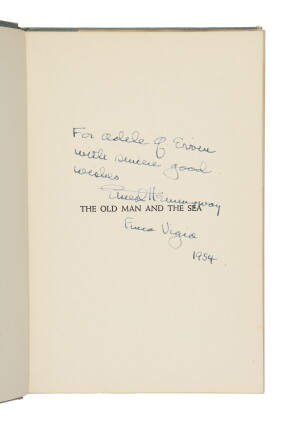 For Adele & Erwin
with sincere good
wishes
Ernest Hemingway
THE OLD MAN AND THE SEA
Finca Vigia
1954